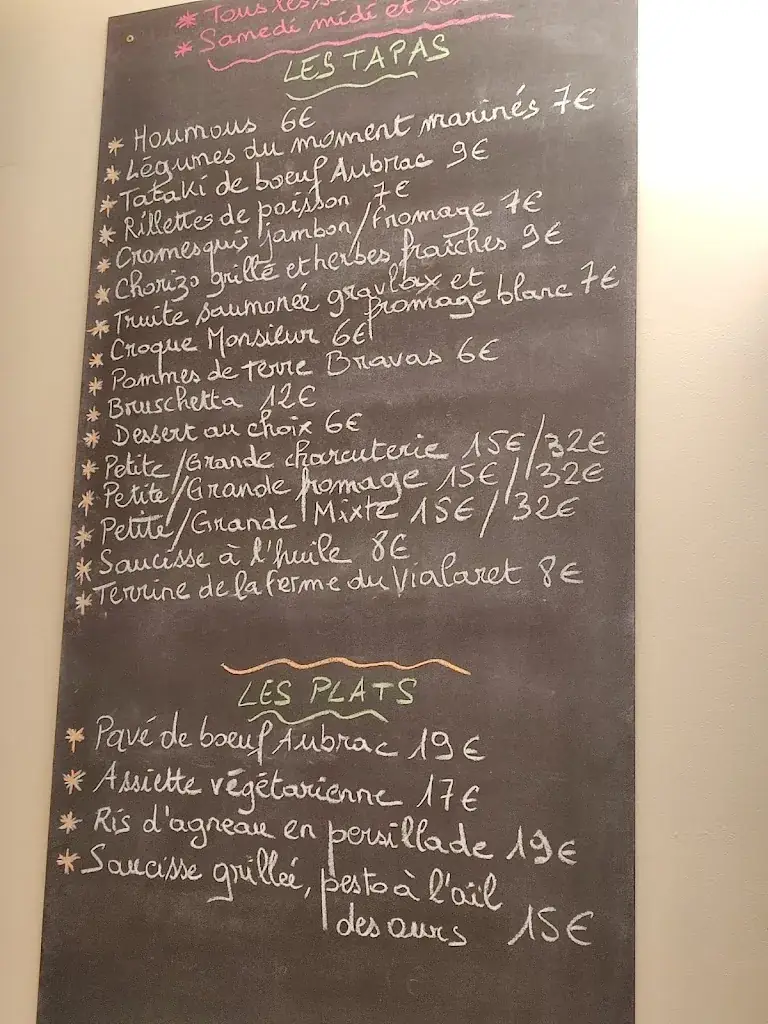 * Tous les
* Samedi midi et
LES TAPAS
* Houmous 6€
* Légumes du moment marinés 7€
* Tataki de boeuf Aubrac 9€
* Rillettes de poisson 7€
* Cromesquis jambon/fromage 7€
* Chorizo grillé et herbes fraîches 9€
* Truite saumonée gravlax et
fromage blanc 7€
* Croque Monsieur 6€
* Pommes de terre Bravas 6€
* Bruschetta 12€
* Dessert au choix 6€
* Petite/Grande charcuterie 15€/32€
* Petite/Grande fromage 15€/32€
* Petite/Grande Mixte 15€/32€
* Saucisse à l'huile 8€
* Terrine de la ferme du Vialaret 8€
LES PLATS
* Pavé de boeuf Aubrac 19€
* Assiette végétarienne 17€
* Ris d'agneau en persillade 19€
* Saucisse grillée, pesto à l'ail
des ours 15€